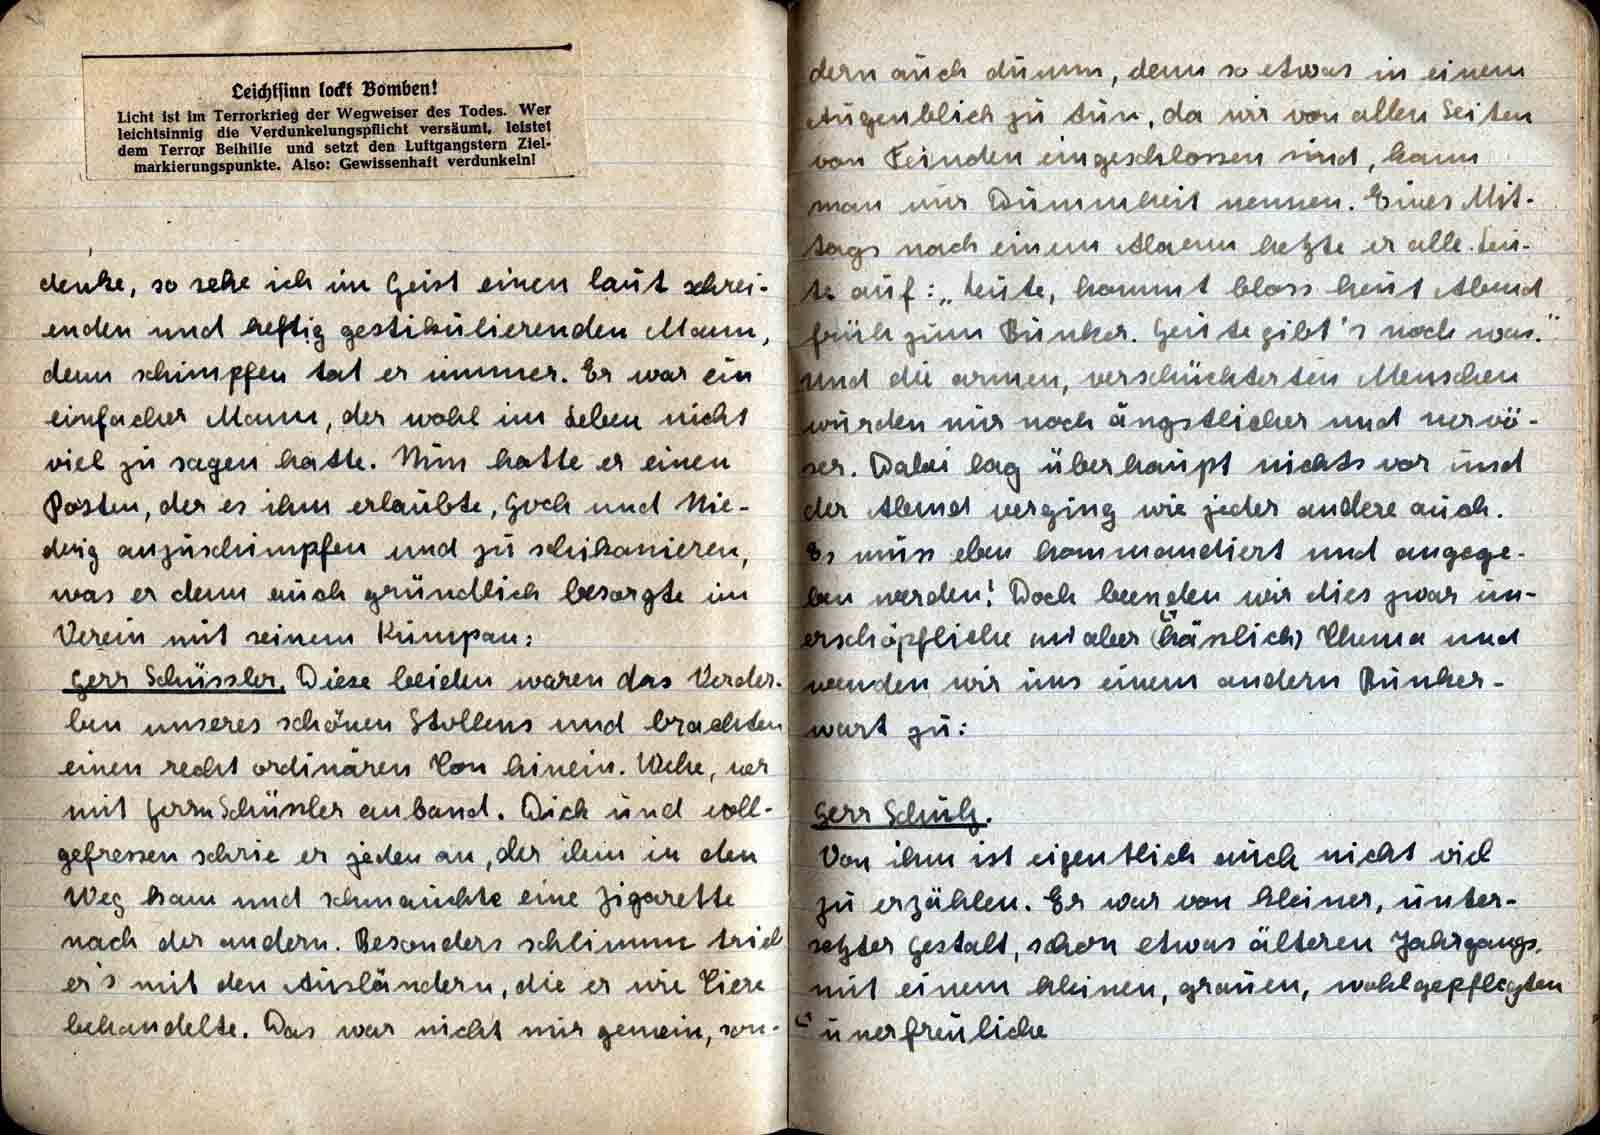 Leichtsinn lockt Bomben!
Licht ist im Terrorkrieg der Wegweiser des Todes. Wer
leichtsinnig die Verdunkelungspflicht versäumt, leistet
dem Terror Beihilfe und setzt den Luftgangstern Ziel-
markierungspunkte. Also: Gewissenhaft verdunkeln!
denke, so sehe ich im Geist einen laut schrei-
enden und heftig gestikulierenden Mann,
denn schimpfen tat er immer. Er war ein
einfacher Mann, der wohl im Leben nicht
viel zu sagen hatte. Nun hatte er einen
Posten, der es ihm erlaubte, Hoch und Nie-
drig anzuschimpfen und zu schikanieren,
was er denn auch gründlich besorgte im
Verein mit seinem Kumpan:
Herr Schüssler. Diese beiden waren das Verder-
ben unseres schönen Stollens und brachten
einen recht ordinären Ton hinein. Wehe, wer
mit Herrn Schüssler anband. Dick und voll-
gefressen schrie er jeden an, der ihm in den
Weg kam und schmauchte eine Zigarette
nach der andern. Besonders schlimm trieb
er's mit den Ausländern, die er wie Tiere
behandelte. Das war nicht nur gemein, son-
dern auch dumm, denn so etwas in einem
Augenblick zu tun, da wir von allen Seiten
von Feinden eingeschlossen sind, kann
man nur Dummheit nennen. Eines Mit-
tags nach einem Alarm hetzte er alle Leu-
te auf: „Leute, kommt bloss heut Abend
früh zum Bunker. Heute gibt's noch was."
Und die armen, verschüchterten Menschen
wurden nur noch ängstlicher und nervö-
ser. Dabei lag überhaupt nichts vor und
der Abend verging wie jeder andere auch.
Es muss eben kommandiert und angege-
ben werden! Doch beenden wir dies zwar un-
erschöpfliche aber (hässlich) Thema und
wenden wir uns einem andern Bunker-
wart zu:
Herr Schulz.
Von ihm ist eigentlich auch nicht viel
zu erzählen. Er war von kleiner, unter-
setzter Gestalt, schon etwas älteren Jahrgangs,
mit einem kleinen, grauen, wohlgepflegten
unerfreuliche